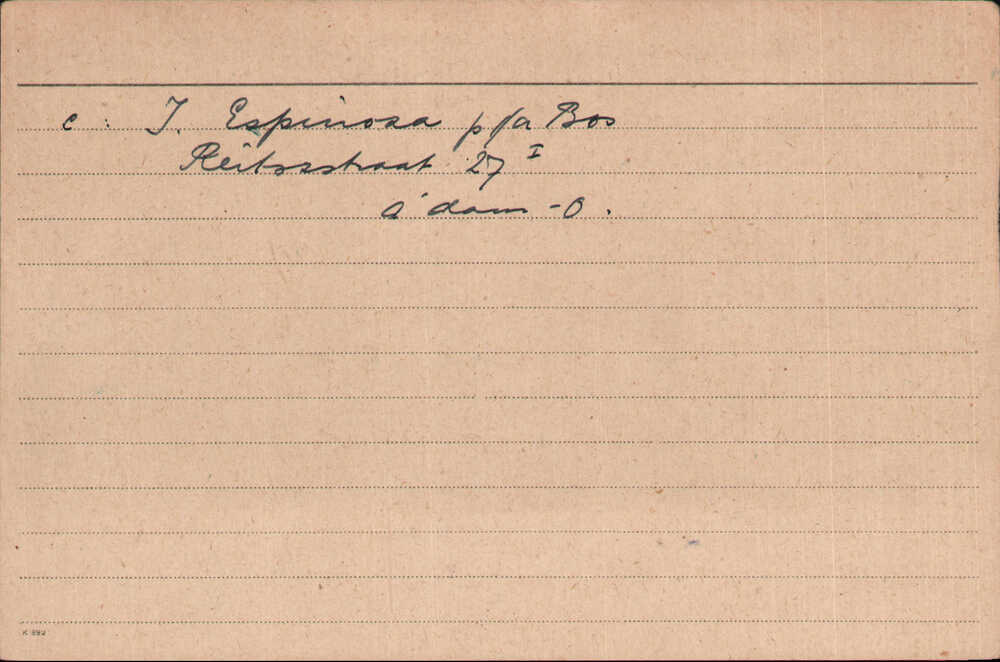 c: J. Espinosa p/a Bos
Reitzstraat 27 I
A'dam-O.
K 892